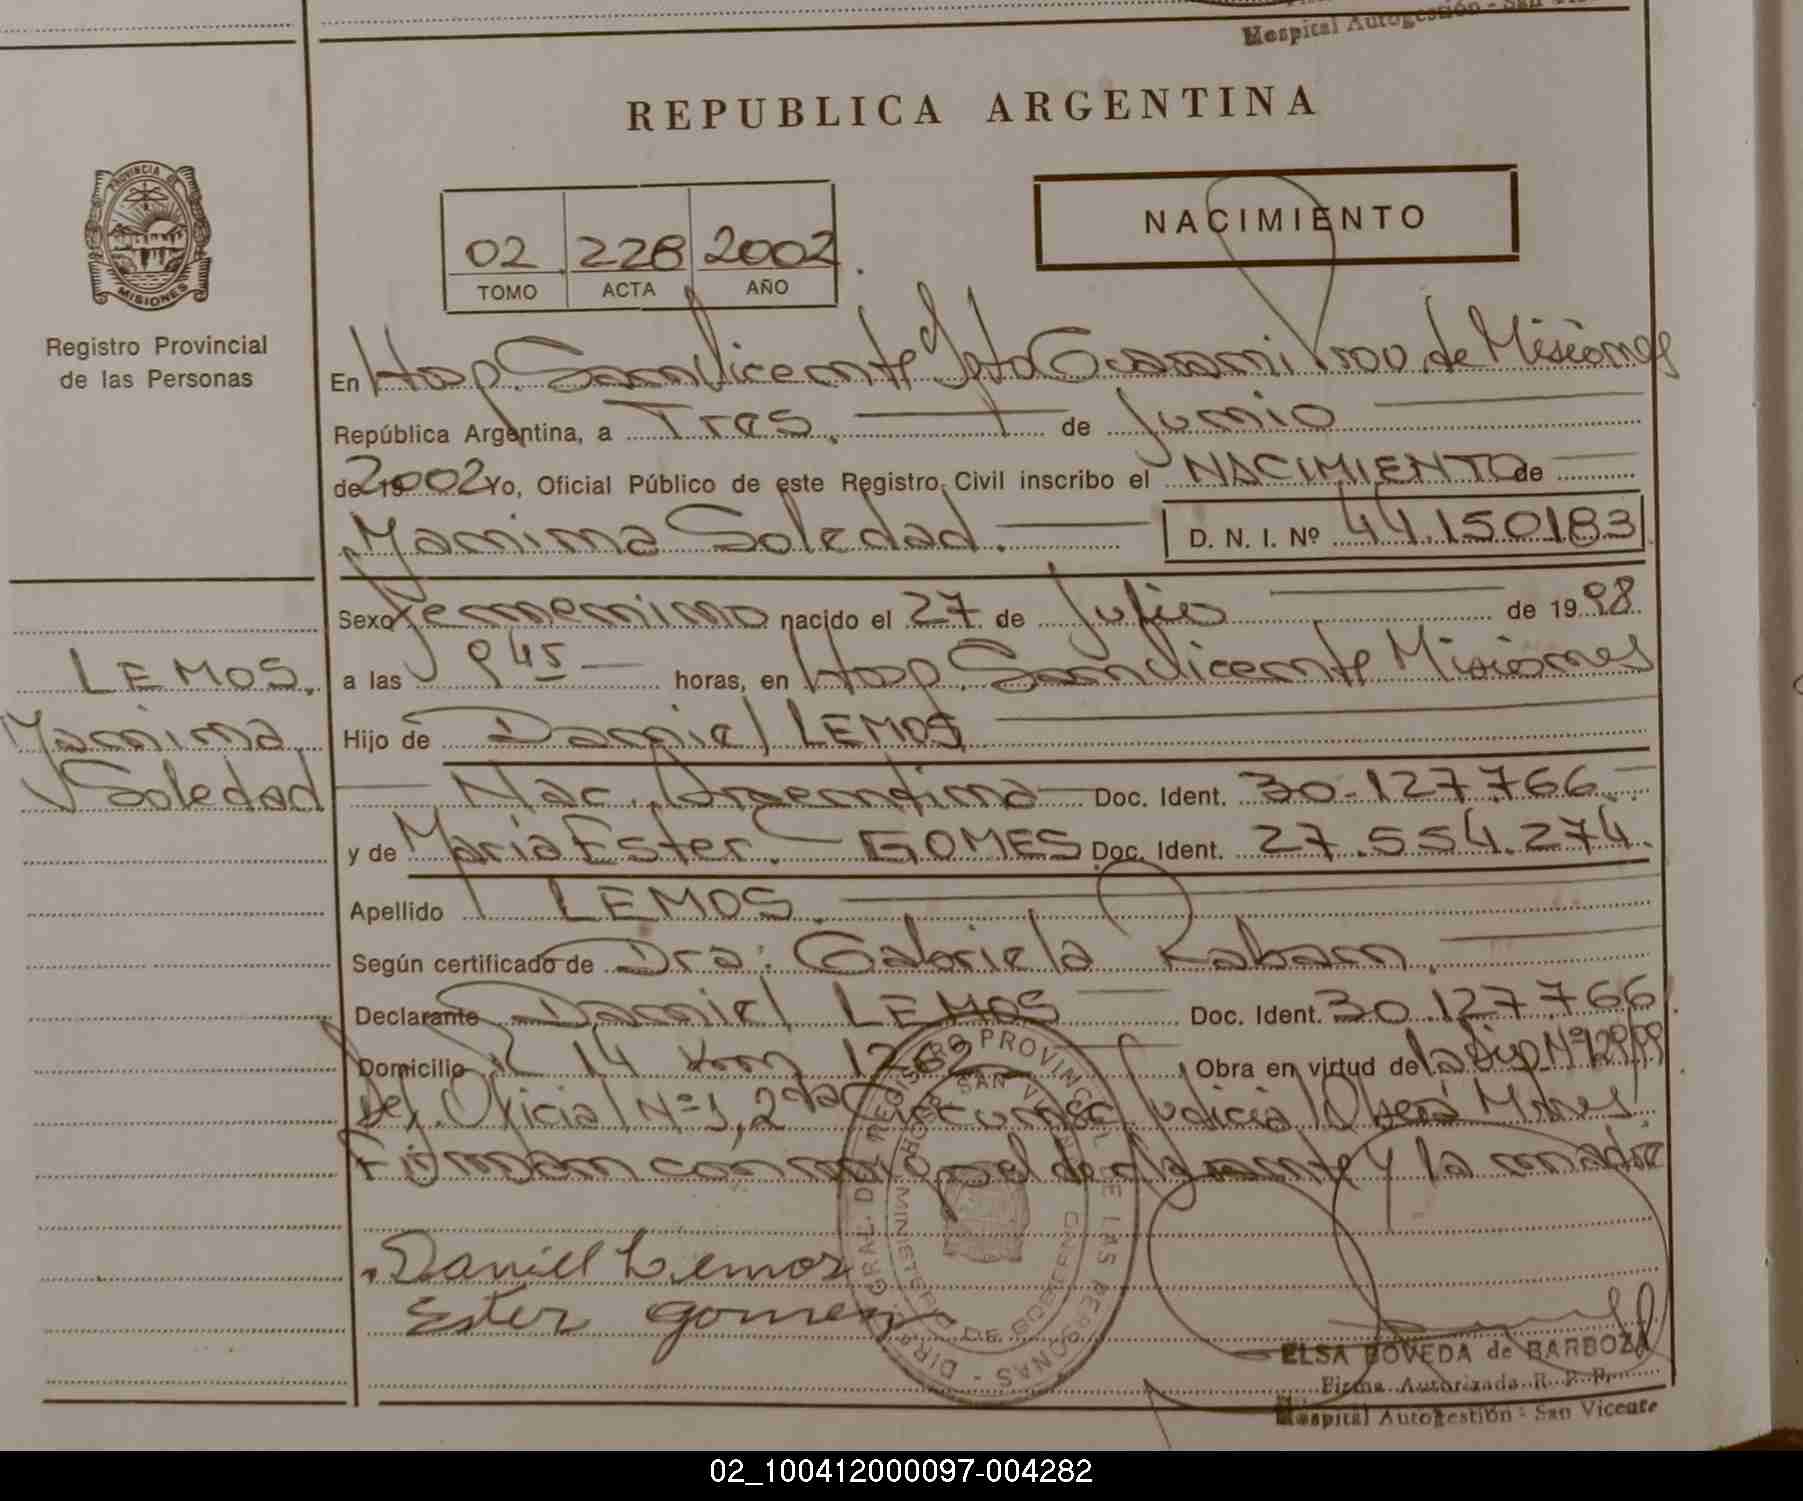 Hospital Autogestión - San
REPUBLICA ARGENTINA
PROVINCIA DE
MISIONES
Registro Provincial
de las Personas
02 228 2002
TOMO ACTA AÑO
NACIMIENTO
En Hosp. San Vicente Dpto Guaraní Prov de Misiones
República Argentina, a Tres. de Junio
de 19 2002 Yo, Oficial Público de este Registro Civil inscribo el NACIMIENTO de
Yanina Soledad. D. N. I. Nº 44.150183
Sexo femenino nacido el 27 de Julio de 19 98
a las 9 45 horas, en Hosp. San Vicente Misiones
Hijo de Daniel LEMOS
Nac. Argentina Doc. Ident. 30.127.766
y de Maria Ester. GOMES Doc. Ident. 27.554.274.
Apellido LEMOS.
Según certificado de Dra: Gabriela Raban.
Declarante Daniel LEMOS Doc. Ident. 30.127.766
Domicilio R 14 Km 1262 Obra en virtud de la Disp. Nº
Def. Oficial Nº 1, 2da Circunsc Judicial Oberá Mnes
Firman conmigo el declarante y la madre
LEMOS.
Yanina
Soledad
Daniel Lemos
Ester gomez
DIREC. GRAL. DEL REGISTRO PROVINCIAL DE LAS PERSONAS
HOSP. SAN VICENTE
MINISTERIO DE GOBIERNO
ELSA BOVEDA de BARBOZA
Firma Autorizada R. P. P.
Hospital Autogestión - San Vicente
02_100412000097-004282